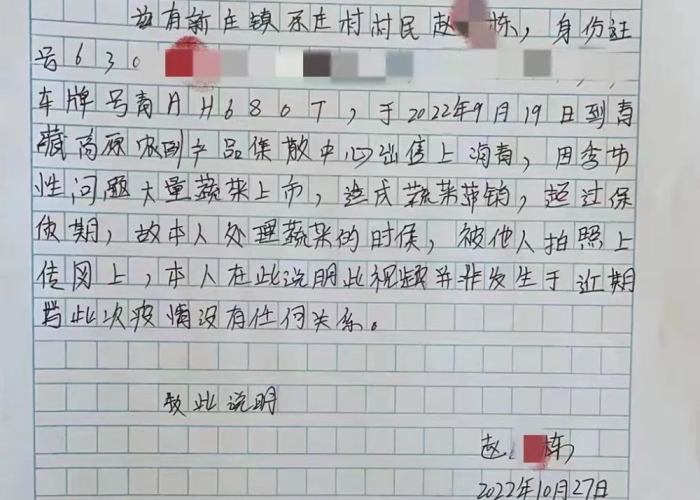 兹有新庄镇乐庄村村民赵 栋，身份证
号630
车牌号青AH680T，于2022年9月19日到青
藏高原农副产品集散中心出售上海青，因季节
性问题大量蔬菜上市，造成蔬菜滞销，超过保
质期，故本人处理蔬菜的时候，被他人拍照上
传网上，本人在此说明此视频并非发生于近期
与此次疫情没有任何关系。
致此说明
赵 栋
2022年10月27日